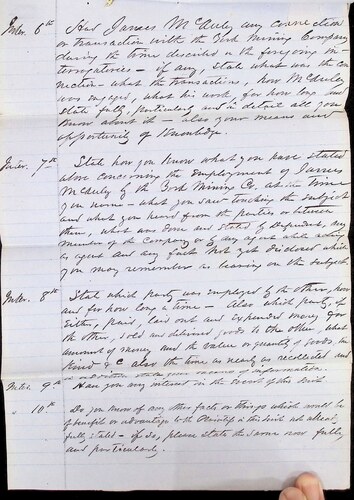 Inter. 6th Had James McAuley any connection
or transaction with the York Mining Company
during the time described in the foregoing in-
terrogatories - if any, state what was the con-
nection - what the transactions, how McAuley
was engaged, what his work, for how long and
state fully, particularly and in detail all you
know about it - also your means and
opportunity of Knowledge.
Inter. 7th State how you know what you have stated
above concerning the employment of James
McAuley by the York Mining Co. at the time
you name - what you saw touching the subject
and what you heard from the parties or between
them, what was done and stated by Defendant, any
member of the Company or by any agent while acting
as agent and any fact not yet disclosed which
you may remember as bearing on the subject.
Inter. 8th State which party was employed by the other, how
and for how long a time - Also which party, if
either, paid, laid out and expended money for
the other, sold and delivered goods to the other, what
amount of money and the value or quantity of goods, the
kind &c also the time as nearly as recollected and
your sources of information.
Inter. 9th Have you any interest in the event of this suit
" 10th Do you know of any other facts or things which would be
of benefit or advantage to the Plaintiff in this suit not already
fully stated - if so, please state the same now fully
and particularly.